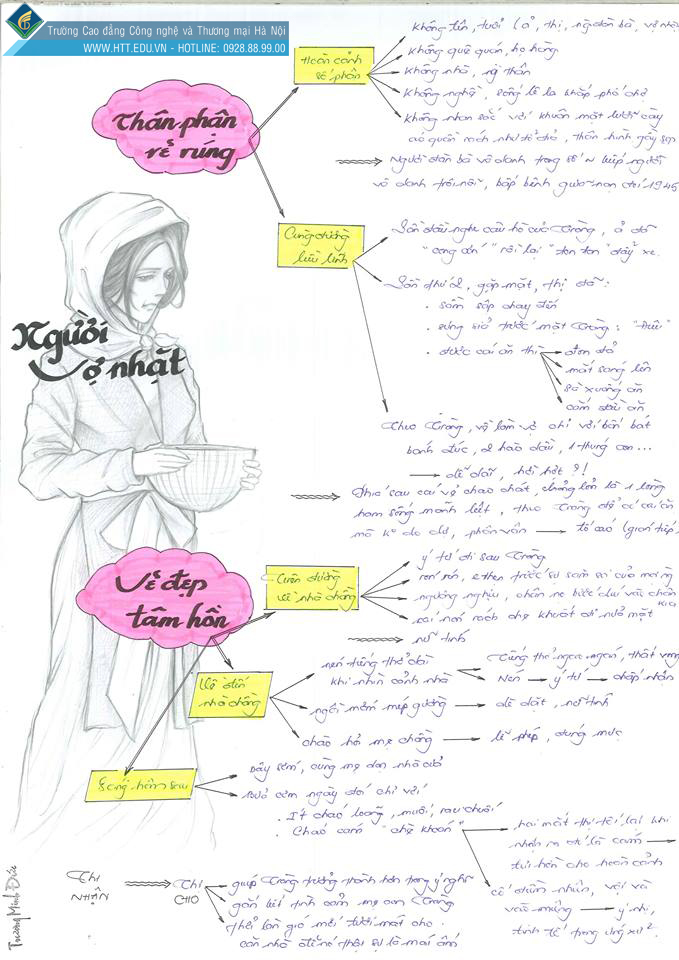 Trường Cao đẳng Công nghệ và Thương mại Hà Nội
WWW.HTT.EDU.VN - HOTLINE: 0928.88.99.00
Người
Vợ nhặt
Thân phận
rẻ rúng
Hoàn cảnh
số phận
không tên, tuổi (ả, thị, người đàn bà, vợ nhặt
không quê quán, họ hàng
không nhà, người thân
không nghề, sống lê la khắp phố chợ
không nhan sắc với khuôn mặt lưỡi cày
áo quần rách như tổ đỉa, thân hình gầy sọp
Người đàn bà vô danh trong số N kiếp người
vô danh trôi nổi, bấp bênh giữa nạn đói 1945
Cung đường
Lần đầu nghe câu hò của Tràng, ả đã
"cong cớn" rồi lại "ton ton" đẩy xe.
Lần thứ 2, gặp mặt, thị đã:
. sầm sập chạy đến
. sưng sỉa trước mặt Tràng: "Điêu"
. được cái ăn thì
đon đỏ
mắt sáng lên
sà xuống ăn
cắm đầu ăn
Theo Tràng, về làm vợ chỉ với bốn bát
bánh đúc, 2 hào dầu, 1 thúng con...
dễ dãi, hời hợt ?!
Phía sau cái vẻ chao chát, chỏng lỏn là 1 lòng
ham sống mãnh liệt, theo Tràng để có cái ăn
mà k do dự, phân vân
tố cáo (gián tiếp)
Vẻ đẹp
tâm hồn
Trên đường
về nhà chồng
ý tứ đi sau Tràng
rón rén, e thẹn trước sự săm soi của mọi ng
ngượng nghịu, chân nọ bước díu vào chân
kia
cái nón rách che khuất đi nửa mặt
nữ tính
Về đến
nhà chồng
nén tiếng thở dài
khi nhìn cảnh nhà
Tiếng thở ngao ngán, thất vọng
Nén
ý tứ
chấp nhận
ngồi mớm mép giường
dè dặt, nữ tính
chào hỏi mẹ chồng
lễ phép, đúng mực
Sáng hôm sau
Dậy sớm, cùng mẹ dọn nhà cửa
Bữa cơm ngày đói chỉ với
. Ít cháo loãng, muối, rau chuối
. Cháo cám "chè khoán"
hai mắt thị tối lại khi
nhận ra đó là cám
tủi hờn cho hoàn cảnh
cố điềm nhiên, vội và
vào miệng
ý nhị,
tinh tế trong ứng xử².
Thị
NHẬN
Thị
CHO
giúp Tràng trưởng thành hơn trong ý nghĩ
gắn kết tình cảm mẹ con Tràng
thổi làn gió mới tươi mát cho
căn nhà để nó thật sự là mái ấm
Trương Minh Đức